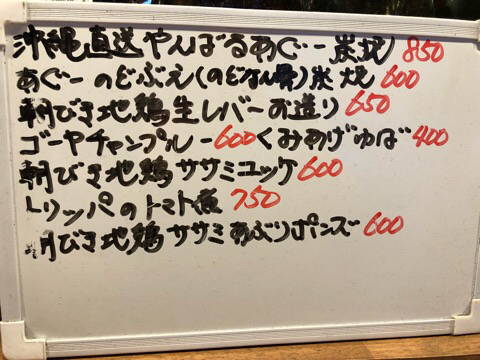 沖縄直送やんばるあぐー炭焼 850
あぐーのどぶえ(のどなん骨)炭焼 600
朝びき地鶏生レバーお造り 650
ゴーヤチャンプルー 600 くみあげゆば 400
朝びき地鶏ササミユッケ 600
トリッパのトマト煮 750
朝びき地鶏ササミあぶりポンズ 600